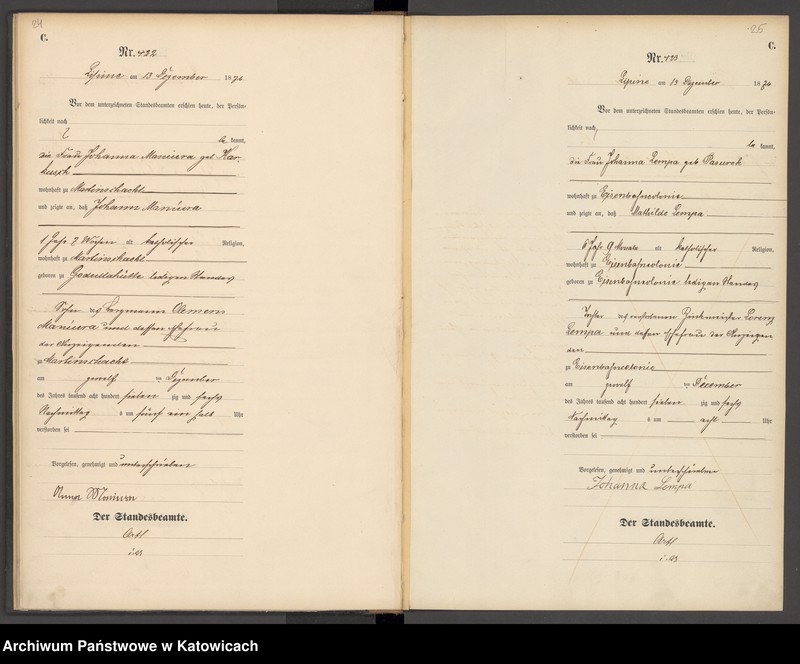 24
C.
Nr. 422
Lipine am 13 Dezember 1876
Vor dem unterzeichneten Standesbeamten erschien heute, der Persön-
lichkeit nach
be kannt,
die Frau Johanna Maniura geb Kar-
wohnhaft zu Martinschacht
und zeigte an, daß Johann Maniura
1 Jahr 2 Wochen alt katholischer Religion,
wohnhaft zu Martinschacht
geboren zu Godullahütte ledigen Standes
Sohn des Bergmanns Clemens
Maniura und dessen Ehefrau
der Anzeigenden
zu Martinschacht
am zwölf ten Dezember
des Jahres tausend acht hundert sieben zig und sechs
Nachmittag s um fünf ein halb Uhr
verstorben sei
Vorgelesen, genehmigt und unterschrieben
Maniura
Der Standesbeamte.
i. V.
25
C.
Nr. 423
Lipine am 13 Dezember 1876
Vor dem unterzeichneten Standesbeamten erschien heute, der Persön-
lichkeit nach
be kannt,
die Frau Johanna Lempa geb
wohnhaft zu Eisenbahncolonie
und zeigte an, daß Mathilde Lempa
6 Jahr 9 Monate alt katholischer Religion,
wohnhaft zu Eisenbahncolonie
geboren zu Eisenbahncolonie ledigen Standes
Tochter des verstorbenen Lorenz
Lempa und dessen Ehefrau der Anzeigen
den
zu Eisenbahncolonie
am zwölf ten December
des Jahres tausend acht hundert sieben zig und sechs
Nachmittag s um acht Uhr
verstorben sei
Vorgelesen, genehmigt und unterschrieben
Johanna Lempa
Der Standesbeamte.
i. V.
Archiwum Państwowe w Katowicach